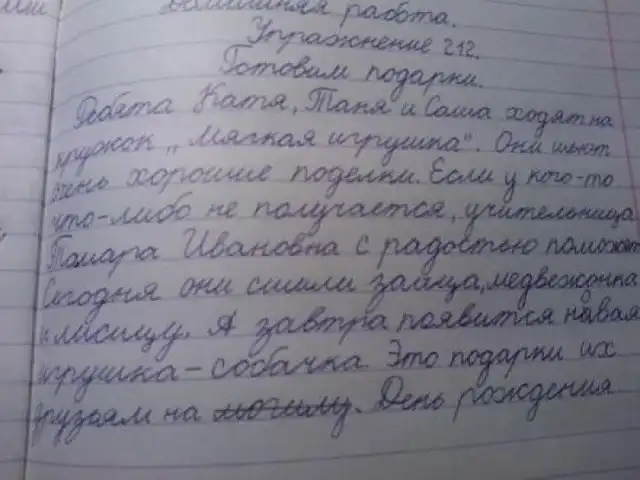 Домашняя работа.
Упражнение 212.
Готовим подарки.
Ребята Катя, Таня и Саша ходят на
кружок „Мягкая игрушка". Они шьют
очень хорошие поделки. Если у кого-то
что-либо не получается, учительница
Тамара Ивановна с радостью поможет
Сегодня они сшили зайца, медвежонка
и лисицу. А завтра появится новая
игрушка – собачка. Это подарки их
друзьям на могилу. День рождения